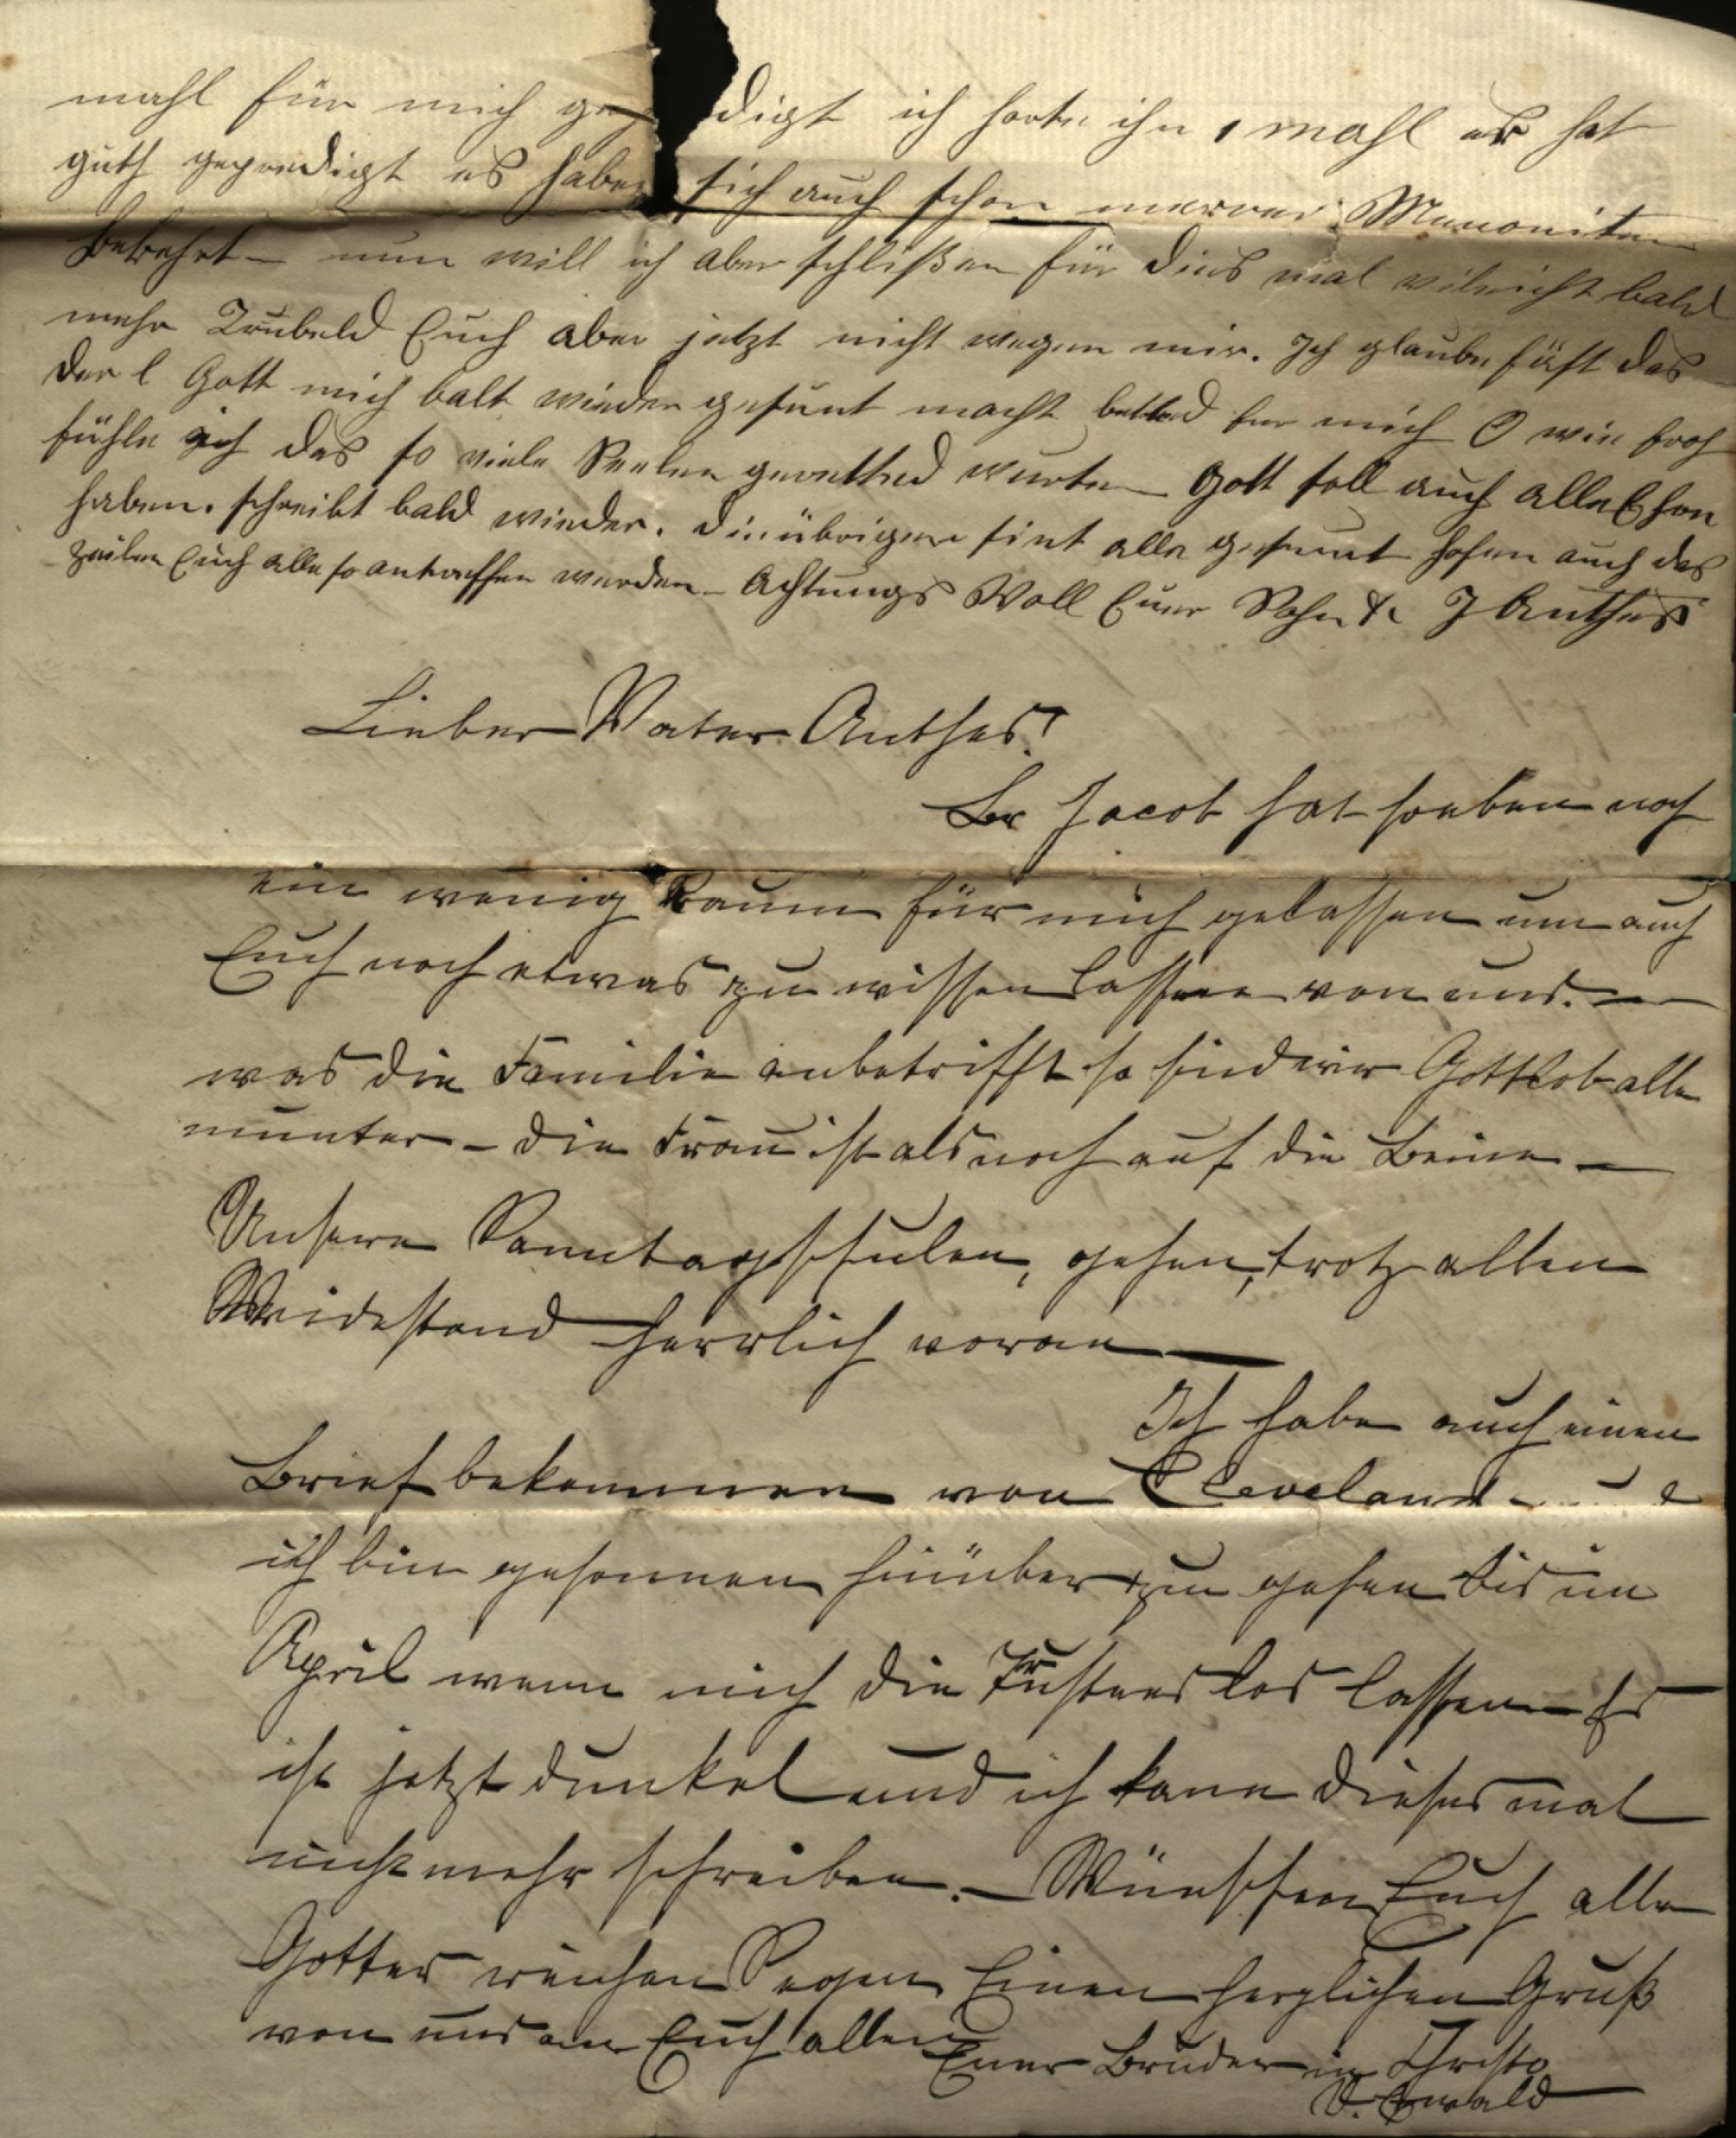 mahl für mich gep digt ich horte ihn 1 mahl er hat
guth gepredigt es haben sich auch schon merrer Menoniten
bekehrt — nun will ich aber schlißen für dies mal vileicht bald
mehr Trubeld Euch aber jetzt nicht wegen mir. Ich glaube fäst das
der l Gott mich balt wieder gesunt macht betted fur mich O wie froh
fühle ich das so viele Seelen gerettted wurten Gott soll auch alle Ehre
haben. schreibt bald wieder. die übrigen sint alle gesunt hofen auch das
zeilen Euch alle so antreffen werden — Achtungs Voll Euer Sohn &c J Anthes
Lieber Vater Anthes!
Br Jacob hat soeben noch
ein wenig Raum für mich gelassen um auch
Euch noch etwas zu wissen lassen von uns. —
was die Familie anbetrifft so sind wir Gottlob alle
munter — die Frau ist als noch auf die Beine —
Unsere Sonntagschulen, gehen, trotz allen
Widestand herrlich voran —
Ich habe auch einen
Brief bekommen von Cleveland
ich bin gesonnen hinüber zu gehen bis im
April wenn mich die Trustees los lassen — Es
ist jetzt dunkel und ich kann dieses mal
nicht mehr schreiben. — Wünschen Euch alle
Gottes reichen Segen Einen herzlichen Gruß
von uns an Euch allen
Euer Bruder in Christo